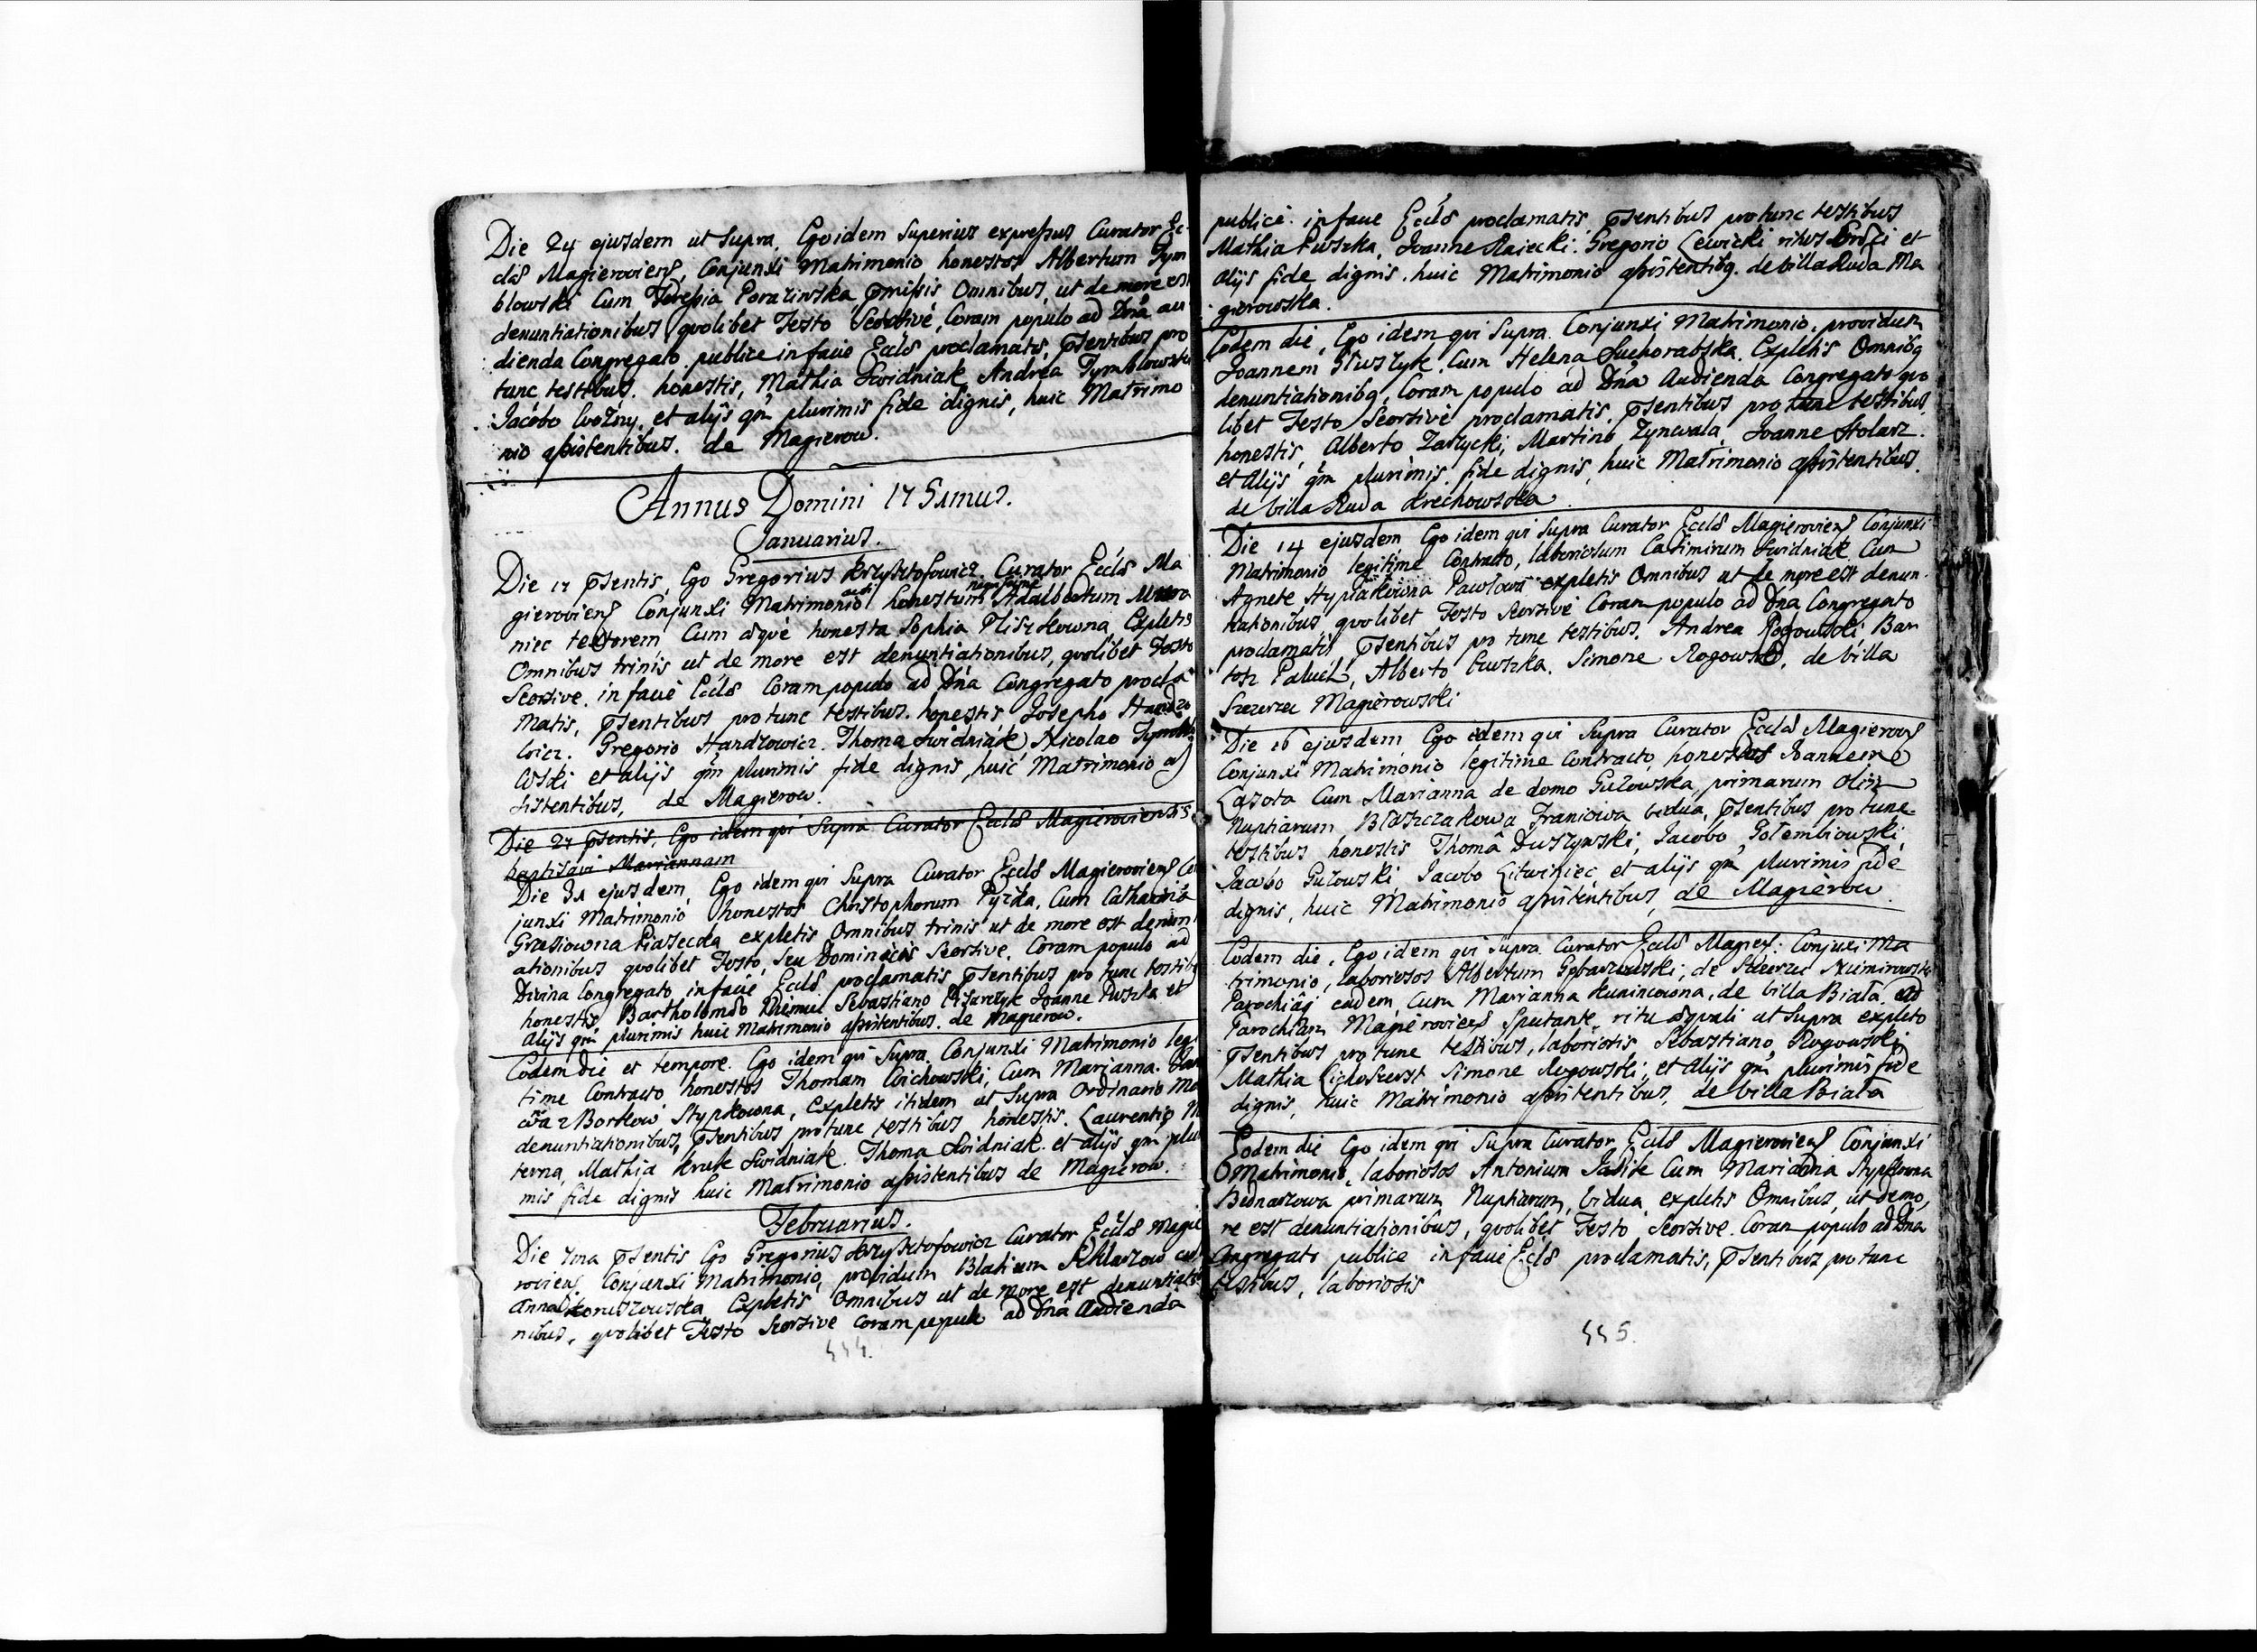 Die 24 ejusdem ut Supra, Ego idem Superius expressus Curator Ec-
clae Magieroviens, Conjunxi Matrimonio honestos Albertum Tym
blowski Cum Teressia Porazinska, pmissis Omnibus, ut de more est
denuntiationibus quolibet Festo Seorsive, Coram populo ad Dna au
dienda Congregato publice in facie Eccls proclamatis, psentibus pro
tunc testibus. honestis, Mathia Swidniak, Andrea Tymblowski
Jacobo Wozny, et alijs qm plurimis fide dignis, huic Matrimo
nio assistentibus. de Magierow.
Annus Domini 1751mus.
Januarius.
Die 17 psentis, Ego Gregorius Krzysztofowicz Curator Eccls Ma
gieroviens Conjunxi Matrimonio honestum Adalbertum
niec textorem Cum aeque honesta Sophia Pliszkowna, Expletis
Omnibus trinis ut de more est denuntiationibus, quolibet Festo
Seorsive, in facie Eccls Coram populo ad Dna Congregato procla
matis, psentibus pro tunc testibus. honestis Josepho
wicz. Gregorio Handzowicz. Thoma Swidniak, Nicolao
owski et alijs qm plurimis fide dignis, huic Matrimonio as
sistentibus, de Magierow.
Die 27 psentis, Ego idem qui Supra Curator Eccls Magieroviensis
baptisavi Mariannam
Die 31 ejusdem, Ego idem qui Supra Curator Eccls Magieroviens Con
junxi Matrimonio honestos Christophorum Pyzda, Cum Catharina
Grzesiowna Piasecka expletis Omnibus trinis ut de more est denun
ationibus quolibet Festo, seu Dominicis Seorsive, Coram populo ad
Divina Congregato, in facie Eccls proclamatis psentibus pro tunc testib
honestis Bartholomeo Sebastiano Pisarzyk Joanne Puszka et
alijs qm plurimis huic Matrimonio assistentibus. de Magierow.
Eodem die et tempore. Ego idem qui Supra. Conjunxi Matrimonio legi
time Contracto honestos Thomam Cichowski, Cum Marianna.
Stypkowna, Expletis itidem ut Supra Ordinario Mo
denuntiationibus, psentibus pro tunc testibus honestis. Laurentio
terna, Mathia Kruk Swidniak. Thoma Swidniak. et alijs qm pluri
mis fide dignis huic Matrimonio assistentibus de Magierow.
Februarius.
Die 7ma psentis Ego Gregorius Krzysztofowicz Curator Eccls Magie
roviens, Conjunxi Matrimonio, providum Blasium Szklarzow cu
anna Expletis Omnibus ut de more est denuntiatio
nibus, quolibet Festo Seorsive coram populo ad Dna Audienda
554.
publice in facie Eccls proclamatis, psentibus pro tunc testibus
Mathia Puszka, Joanne Raiecki. Gregorio Lewicki ritus et
alijs fide dignis. huic Matrimonio assistentibq. de villa Ruda Ma
gierowska.
Eodem die, Ego idem qui Supra. Conjunxi Matrimonio. providum
Joannem Gluszyk, Cum Helena Suchorabska. Expletis Omnibq
denuntiationibq, Coram populo ad Dna Audienda Congregato quo
libet Festo Seorsive proclamatis. psentibus pro tunc testibus,
honestis, Alberto Zarzycki, Martino Zynwala, Joanne Stolarz.
et alijs qm plurimis. fide dignis, huic Matrimonio assistentibus.
de villa Ruda Krechowska
Die 14 ejusdem Ego idem qui Supra Curator Eccls Magieroviens Conjunxi
Matrimonio legitime Contracto, laboriosum Casimirum Swidniak Cum
Agnete expletis Omnibus ut de more est denun-
tiationibus quolibet Festo Seorsive Coram populo ad Dna Congregato
proclamatis psentibus pro tunc testibus. Andrea Rogowski Bar
tosz Paluch, Alberto Puszka. Simone Rogowski, de villa
Szczerzec Magierowski
Die 16 ejusdem Ego idem qui Supra Curator Eccls Magierovs
Conjunxi Matrimonio legitime Contracto, honestos Joannem
Lasota Cum Marianna de domo Guzowska, primarum olim
Nuptiarum Blaszczakowa Franiowa vidua, psentibus pro tunc
testibus honestis Thoma Duszynski, Jacobo Golembiowski,
Jacobo Guzowski, Jacobo Litwiniec et alijs qm plurimis fide
dignis, huic Matrimonio assistentibus, de Magierow.
Eodem die, Ego idem qui Supra Curator Eccls Magiers: Conjuxi Ma
trimonio, laboriosos Albertum de Szczerzec Niemirowski
Parochiae eadem, Cum Marianna Kunincowna, de villa Biala, ad
Parochiam Magieroviens Spectante, ritu aequali ut Supra expleto
psentibus pro tunc testibus, laboriosis Sebastiano Rogowski
Mathia Simone Rogowski, et alijs qm plurimis fide
dignis, huic Matrimonio assistentibus, de villa Biala
Eodem die Ego idem qui Supra Curator Eccls Magieroviens Conjunxi
Matrimonio, laboriosos Antonium Cum Marianna Stypkowna
Bednarzowa primarum Nuptiarum, vidua, expletis Omnibus, ut de mo,
re est denuntiationibus, quolibet Festo Seorsive. Coram populo ad Dna
Congregato publice in facie Eccls proclamatis, psentibus pro tunc
testibus, laboriosis
555.